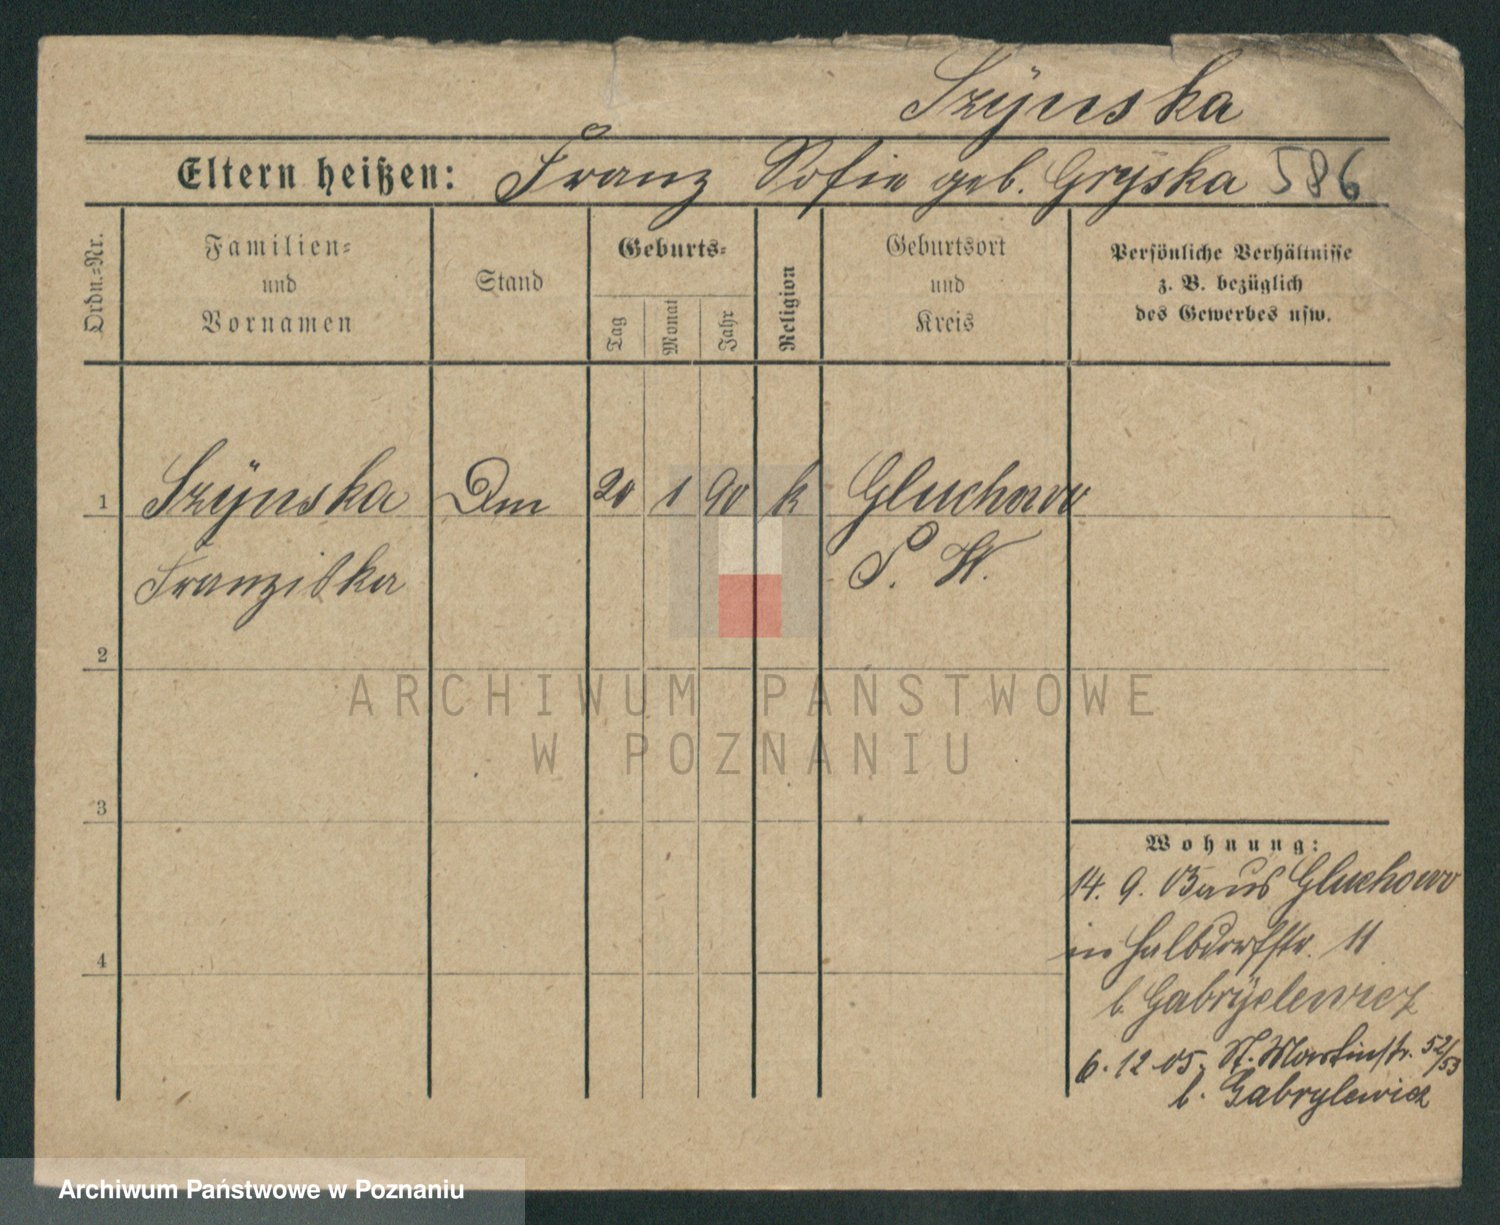 Szÿnska
Eltern heißen: Franz Sofie geb. Grÿska 586
Ordn.=Nr.
Familien=
und
Vornamen
Stand
Geburts=
Tag
Monat
Jahr
Religion
Geburtsort
und
Kreis
Persönliche Verhältnisse
z. B. bezüglich
des Gewerbes usw.
1 Szÿnska Dm 20 1 90 k Gluchowo
Franziska P. W.
2
3
4
Wohnung:
14. 9. 05 aus Gluchowo
in Halbdorfstr. 11
b. Gabrÿelewicz
6. 12 05. St. Martinstr. 52/53
b. Gabrylewicz
ARCHIWUM PAŃSTWOWE
W POZNANIU
Archiwum Państwowe w Poznaniu